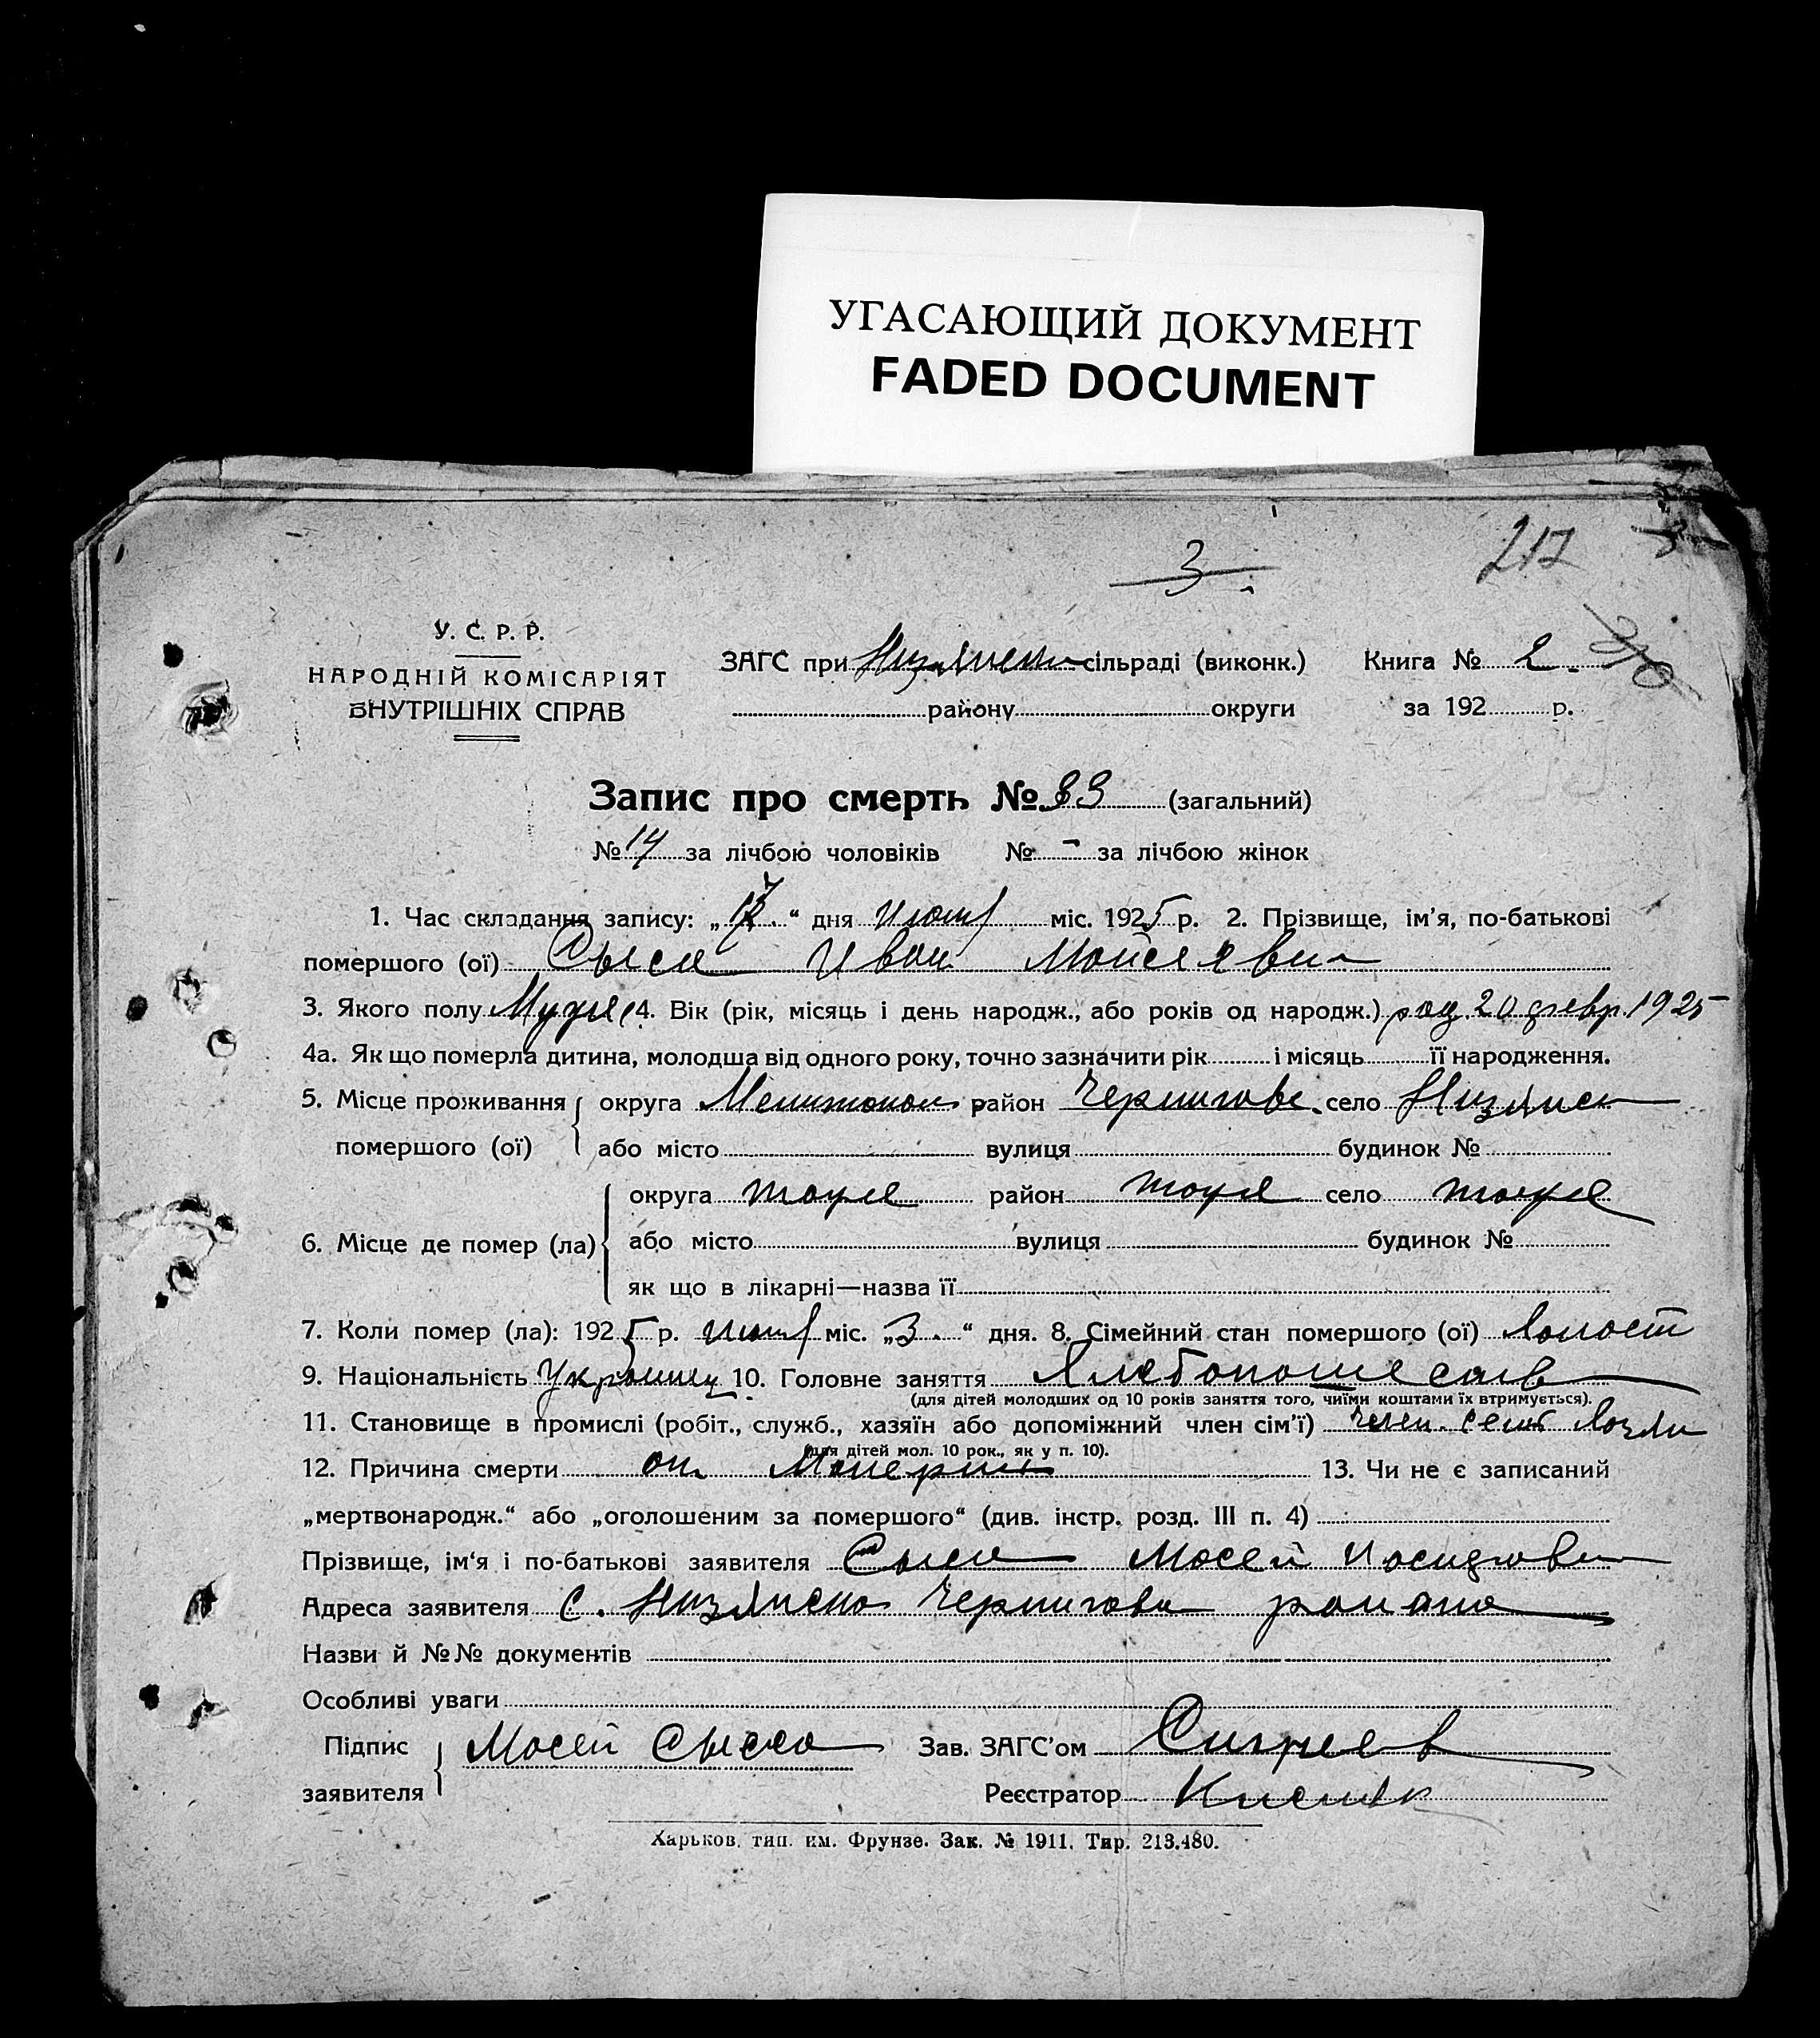 УГАСАЮЩИЙ ДОКУМЕНТ
FADED DOCUMENT
3
217
У. С. Р. Р.
НАРОДНІЙ КОМІСАРІЯТ
ВНУТРІШНІХ СПРАВ
ЗАГС при сільраді (виконк.) Книга № 2.
району округи за 192 р.
Запис про смерть № 33 (загальний)
№ 14 за лічбою чоловіків № - за лічбою жінок
1. Час складання запису: „ “ дня міс. 1925 р. 2. Прізвище, ім'я, по-батькові
помершого (ої) Сыса Иван Мойсяеви
3. Якого полу 4. Вік (рік, місяць і день народж., або років од народж.) род. 20 февр. 1925
4а. Як що померла дитина, молодша від одного року, точно зазначити рік і місяць її народження.
5. Місце проживання округа Мелитопол район Чернигове. село
помершого (ої) або місто вулиця будинок №
округа тоже район тоже село тоже
6. Місце де помер (ла) або місто вулиця будинок №
як що в лікарні—назва її
7. Коли помер (ла): 1925 р. міс. „3.“ дня. 8. Сімейний стан помершого (ої) холост
9. Національність Украинец 10. Головне заняття
(для дітей молодших од 10 років заняття того, чиїми коштами їх втримується).
11. Становище в промислі (робіт., служб., хазяїн або допоміжний член сім'ї)
(для дітей мол. 10 рок., як у п. 10).
12. Причина смерти от 13. Чи не є записаний
„мертвонародж.“ або „оголошеним за помершого“ (див. інстр. розд. III п. 4)
Прізвище, ім'я і по-батькові заявителя Сыса Мосей
Адреса заявителя с. района
Назви й №№ документів
Особливі уваги
Підпис Мосей Сыса Зав. ЗАГС'ом
заявителя Реєстратор
Харьков. тип. им. Фрунзе. Зак. № 1911. Тир. 213.480.